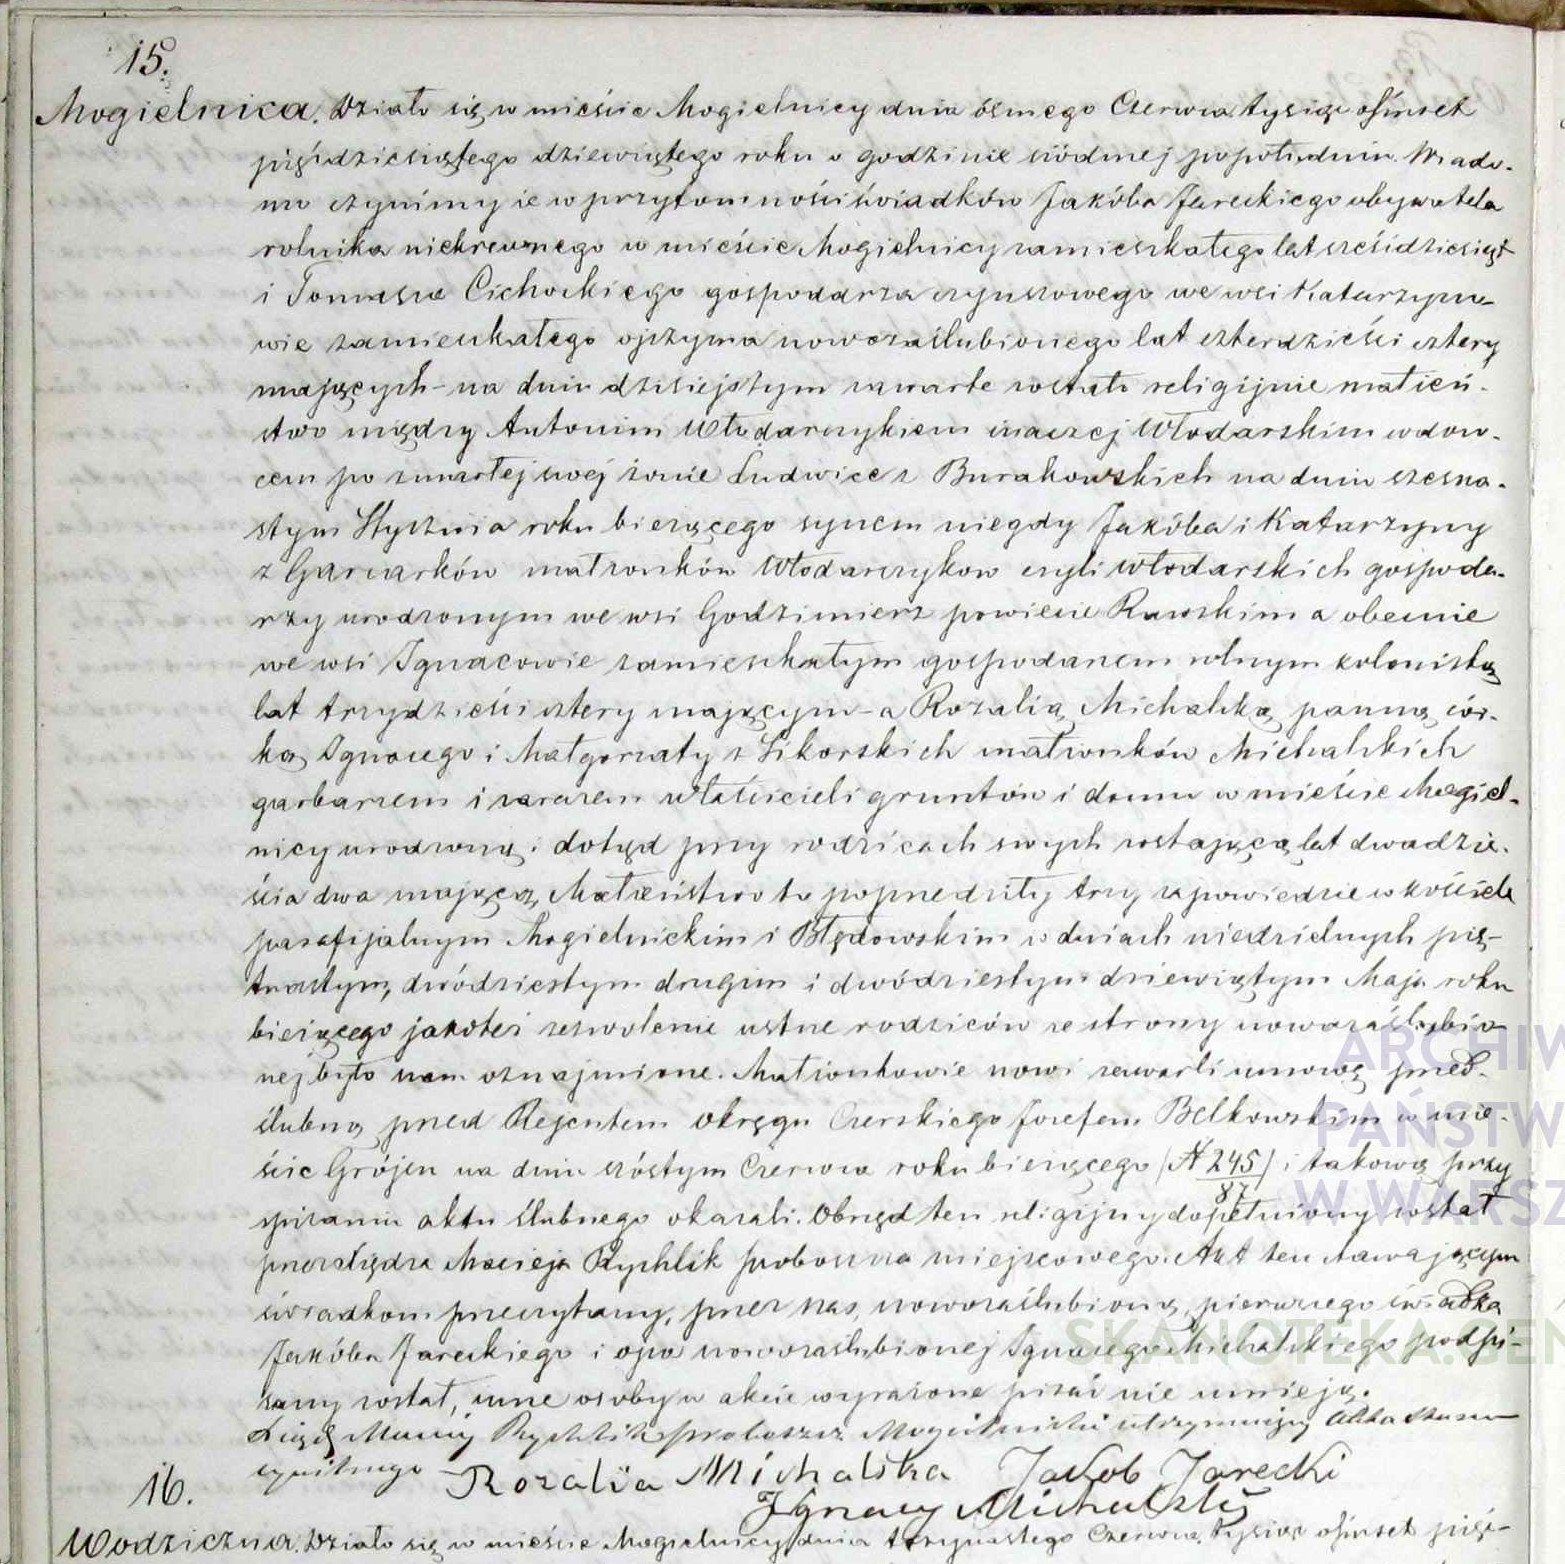 15.
Mogielnica. Działo się w mieście Mogielnicy dnia ósmego Czerwca tysiąc ośmset
pięśdziesiątego dziewiątego roku o godzinie siódmej popołudniu. Wiado-
mo czynimy że w przytomności świadków Jakóba Jareckiego obywatela
rolnika niekrewnego w mieście Mogielnicy zamieszkałego lat sześćdziesiąt
i Tomasza Cichockiego gospodarza czynszowego we wsi Katarzyno-
wie zamieszkałego ojczyma nowozaślubionego lat czterdzieści cztery
mających - na dniu dzisiejszym zawarte zostało religijnie małżeń-
stwo między Antonim Włodarczykiem inaczej Włodarskim wdow-
cem po zmarłej swej żonie Ludwice z Burakowskich na dniu szesna-
stym Stycznia roku bieżącego synem niegdy Jakóba i Katarzyny
z Garnarków małżonków Włodarczykow czyli Włodarskich gospoda-
rzy urodzonym we wsi Godzimierz powiecie Rawskim a obecnie
we wsi Ignacowie zamieszkałym gospodarzem rolnym kolonistą
lat trzydzieści cztery mającym - a Rozalią Michalską panną cór-
ką Ignacego i Małgorzaty z Sikorskich małżonków Michalskich
garbarzem i zarazem właścicieli gruntów i domu w mieście Mogiel-
nicy urodzoną i dotąd przy rodzicach swych zostającą lat dwadzie-
ścia dwa mającą. Małżeństwo to poprzedziły trzy zapowiedzie w kościele
parafijalnym Mogielnickim i Błędowskim w dniach niedzielnych pię-
tnastym, dwódziestym drugim i dwódziestym dziewiątym Maja roku
bieżącego jakoteż zezwolenie ustne rodziców ze strony nowozaślubio
nej było nam oznajmione. Małżonkowie nowi zawarli umowę przed-
ślubną przed Rejentem Okręgu Czerskiego Józefem Bełkowskim w mie-
ście Grójcu na dniu szóstym Czerwca roku bieżącego (N 245/87) i takową przy
spisaniu aktu ślubnego okazali. Obrzęd ten religijny dopełniony został
przez Księdza Macieja Rychlik proboszcza miejscowego. Akt ten stawającym
świadkom przeczytany, przez nas, nowozaślubioną, pierwszego świadka
Jakóba Jareckiego i ojca nowozaślubionej Ignacego Michalskiego podpi-
sany został, inne osoby w akcie wyrażone pisać nie umieją.
Ksiądz Maciej Rychlik proboszcz Mogielnicki utrzymujący Akta stanu
cywilnego Rozalia Michalska Jakob Jarecki
Ignacy Michalski
16.
Wodziczna. Działo się w mieście Mogielnicy dnia trzynastego Czerwca tysiąc ośmset pięć-
ARCHIW
PAŃSTW
W WARSZ
SKANOTEKA.GEN